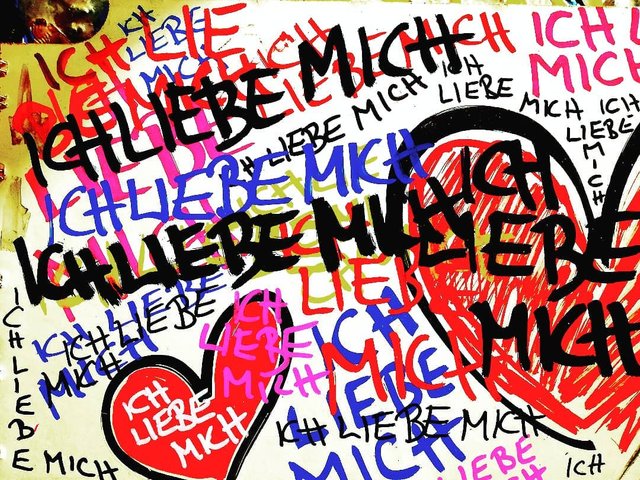 ICH LIE
ICH
LIEBE
MICH
ICH LIEBE MICH
ICH LIEBE MICH
ICH
LIEBE
MICH
ICH L
MICH
ICH
LIEBE
MICH
LIEBE MICH
ICH LIEBE MICH
ICH LIEBE MICH
ICH
LIEBE
MICH
LIEBE
MICH
ICH LIEBE
ICH LIEBE
MICH
ICH
LIEBE
MICH
ICH
LIEBE
MICH
ICH
LIEBE
MICH
ICH LIEBE MICH
ICH LIEBE
MICH
LIEBE
ICH